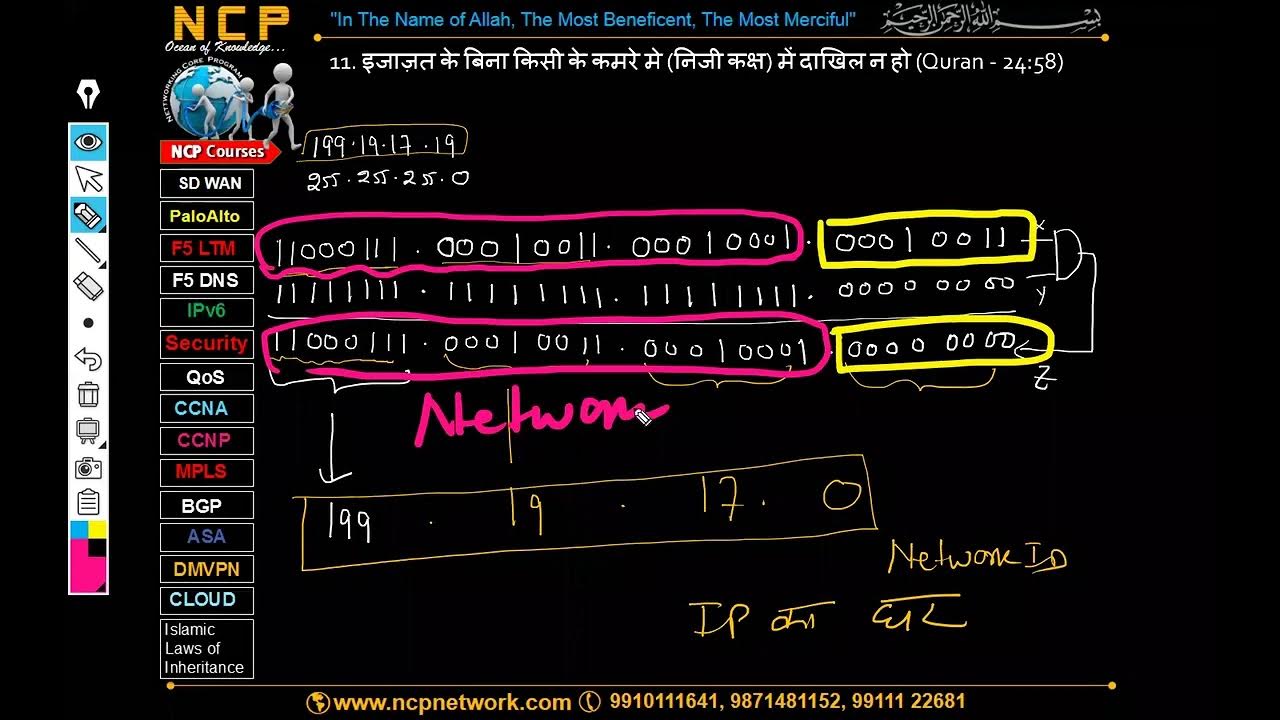 NCP
Ocean of Knowledge...
NETTWORKING CORE PROGRAM
"In The Name of Allah, The Most Beneficent, The Most Merciful"
بِسْمِ اللهِ الرَّحْمٰنِ الرَّحِيْمِ
11. इजाज़त के बिना किसी के कमरे मे (निजी कक्ष) में दाखिल न हो (Quran - 24:58)
NCP Courses
SD WAN
PaloAlto
F5 LTM
F5 DNS
IPv6
Security
QoS
CCNA
CCNP
MPLS
BGP
ASA
DMVPN
CLOUD
Islamic
Laws of
Inheritance
199.19.17.19
255.255.255.0
11000111.00010011.00010001.00010011 X
11111111.11111111.11111111.00000000 Y
11000111.00010011.00010001.00000000
Z
Networ
199.19.17.0
Network ID
IP का घर
www.ncpnetwork.com 9910111641, 9871481152, 99111 22681